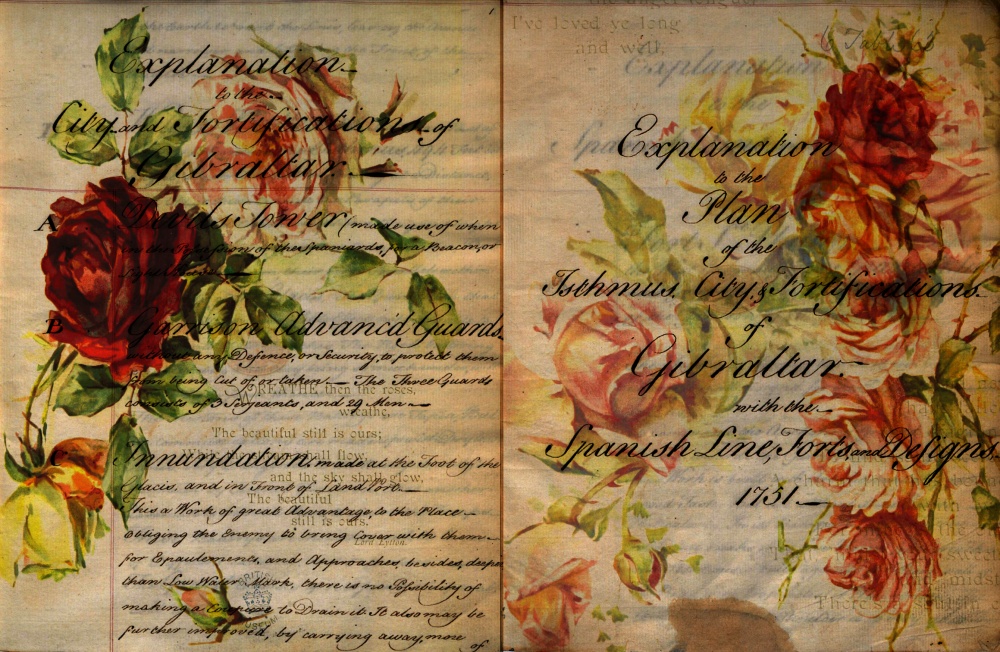 1
Explanation
to the
City and Fortifications of
Gibraltar
A Devils Tower (made use of when
in the possession of the Spaniards, for a Beacon, or
B Garrison Advanc'd Guards
without any Defence, or Security, to protect them
from being Cut of or taken. The Three Guards
consists of 3 Serjeants, and 29 Men
BREATHE then the roses,
wreathe,
The beautiful still is ours;
flow,
and the sky shall glow,
The beautiful
still is ours.
Lord Lytton.
C Innundation, made at the Foot of the
Glacis, and in Front of Land Port
This a Work of great Advantage, to the Place
obliging the Enemy to bring Cover with them
for Epaulements, and Approaches, besides, deeper
than Low Water Mark, there is no Possibility of
making a Coupure to Drain it. It also may be
further improved, by carrying away, more
of
BRITISH
MUSEUM
the
longer
I've loved ye long
and well,
Explanation
Explanation
to the
Plan
of the
Isthmus, City, & Fortifications
of
Gibraltar.
with the
Spanish Line, Forts and Designs
1751